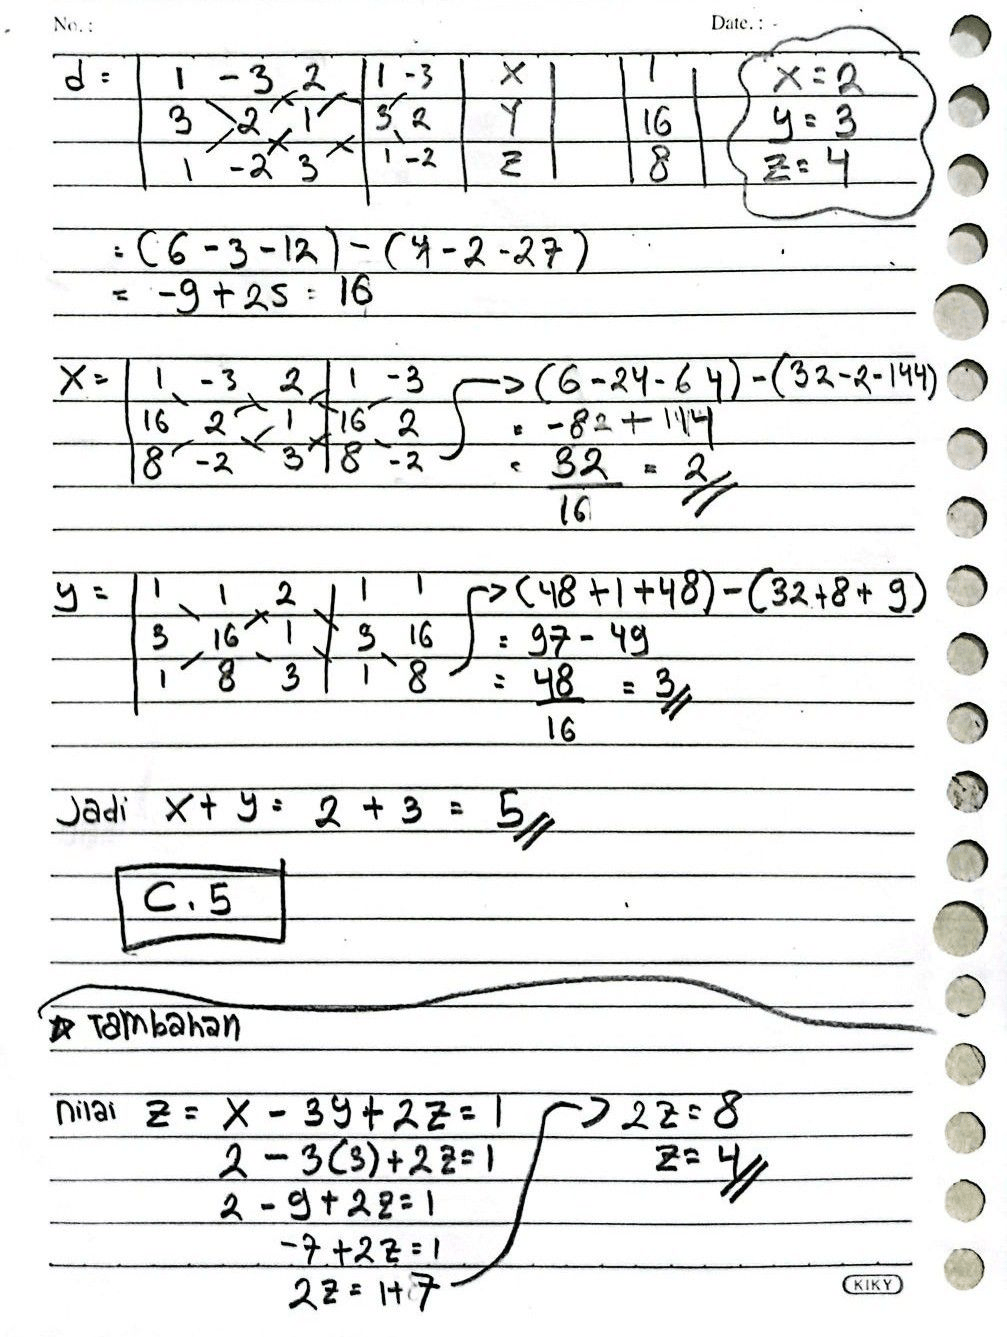 No. : Date. :
d = | 1 -3 2 | 1 -3 | X | 1 | x = 2
3 2 1 | 3 2 | Y | 16 | y = 3
1 -2 3 | 1 -2 | Z | 8 | z = 4
= (6 - 3 - 12) - (4 - 2 - 27)
= -9 + 25 = 16
X = | 1 -3 2 | 1 -3 → (6 - 24 - 64) - (32 - 2 - 144)
16 2 1 | 16 2 = -82 + 114
8 -2 3 | 8 -2 = 32/16 = 2
y = | 1 1 2 | 1 1 → (48 + 1 + 48) - (32 + 8 + 9)
3 16 1 | 3 16 = 97 - 49
1 8 3 | 1 8 = 48/16 = 3
Jadi x + y = 2 + 3 = 5
C. 5
☆ Tambahan
nilai z = x - 3y + 2z = 1 → 2z = 8
2 - 3(3) + 2z = 1 z = 4
2 - 9 + 2z = 1
-7 + 2z = 1
2z = 1 + 7
KIKY